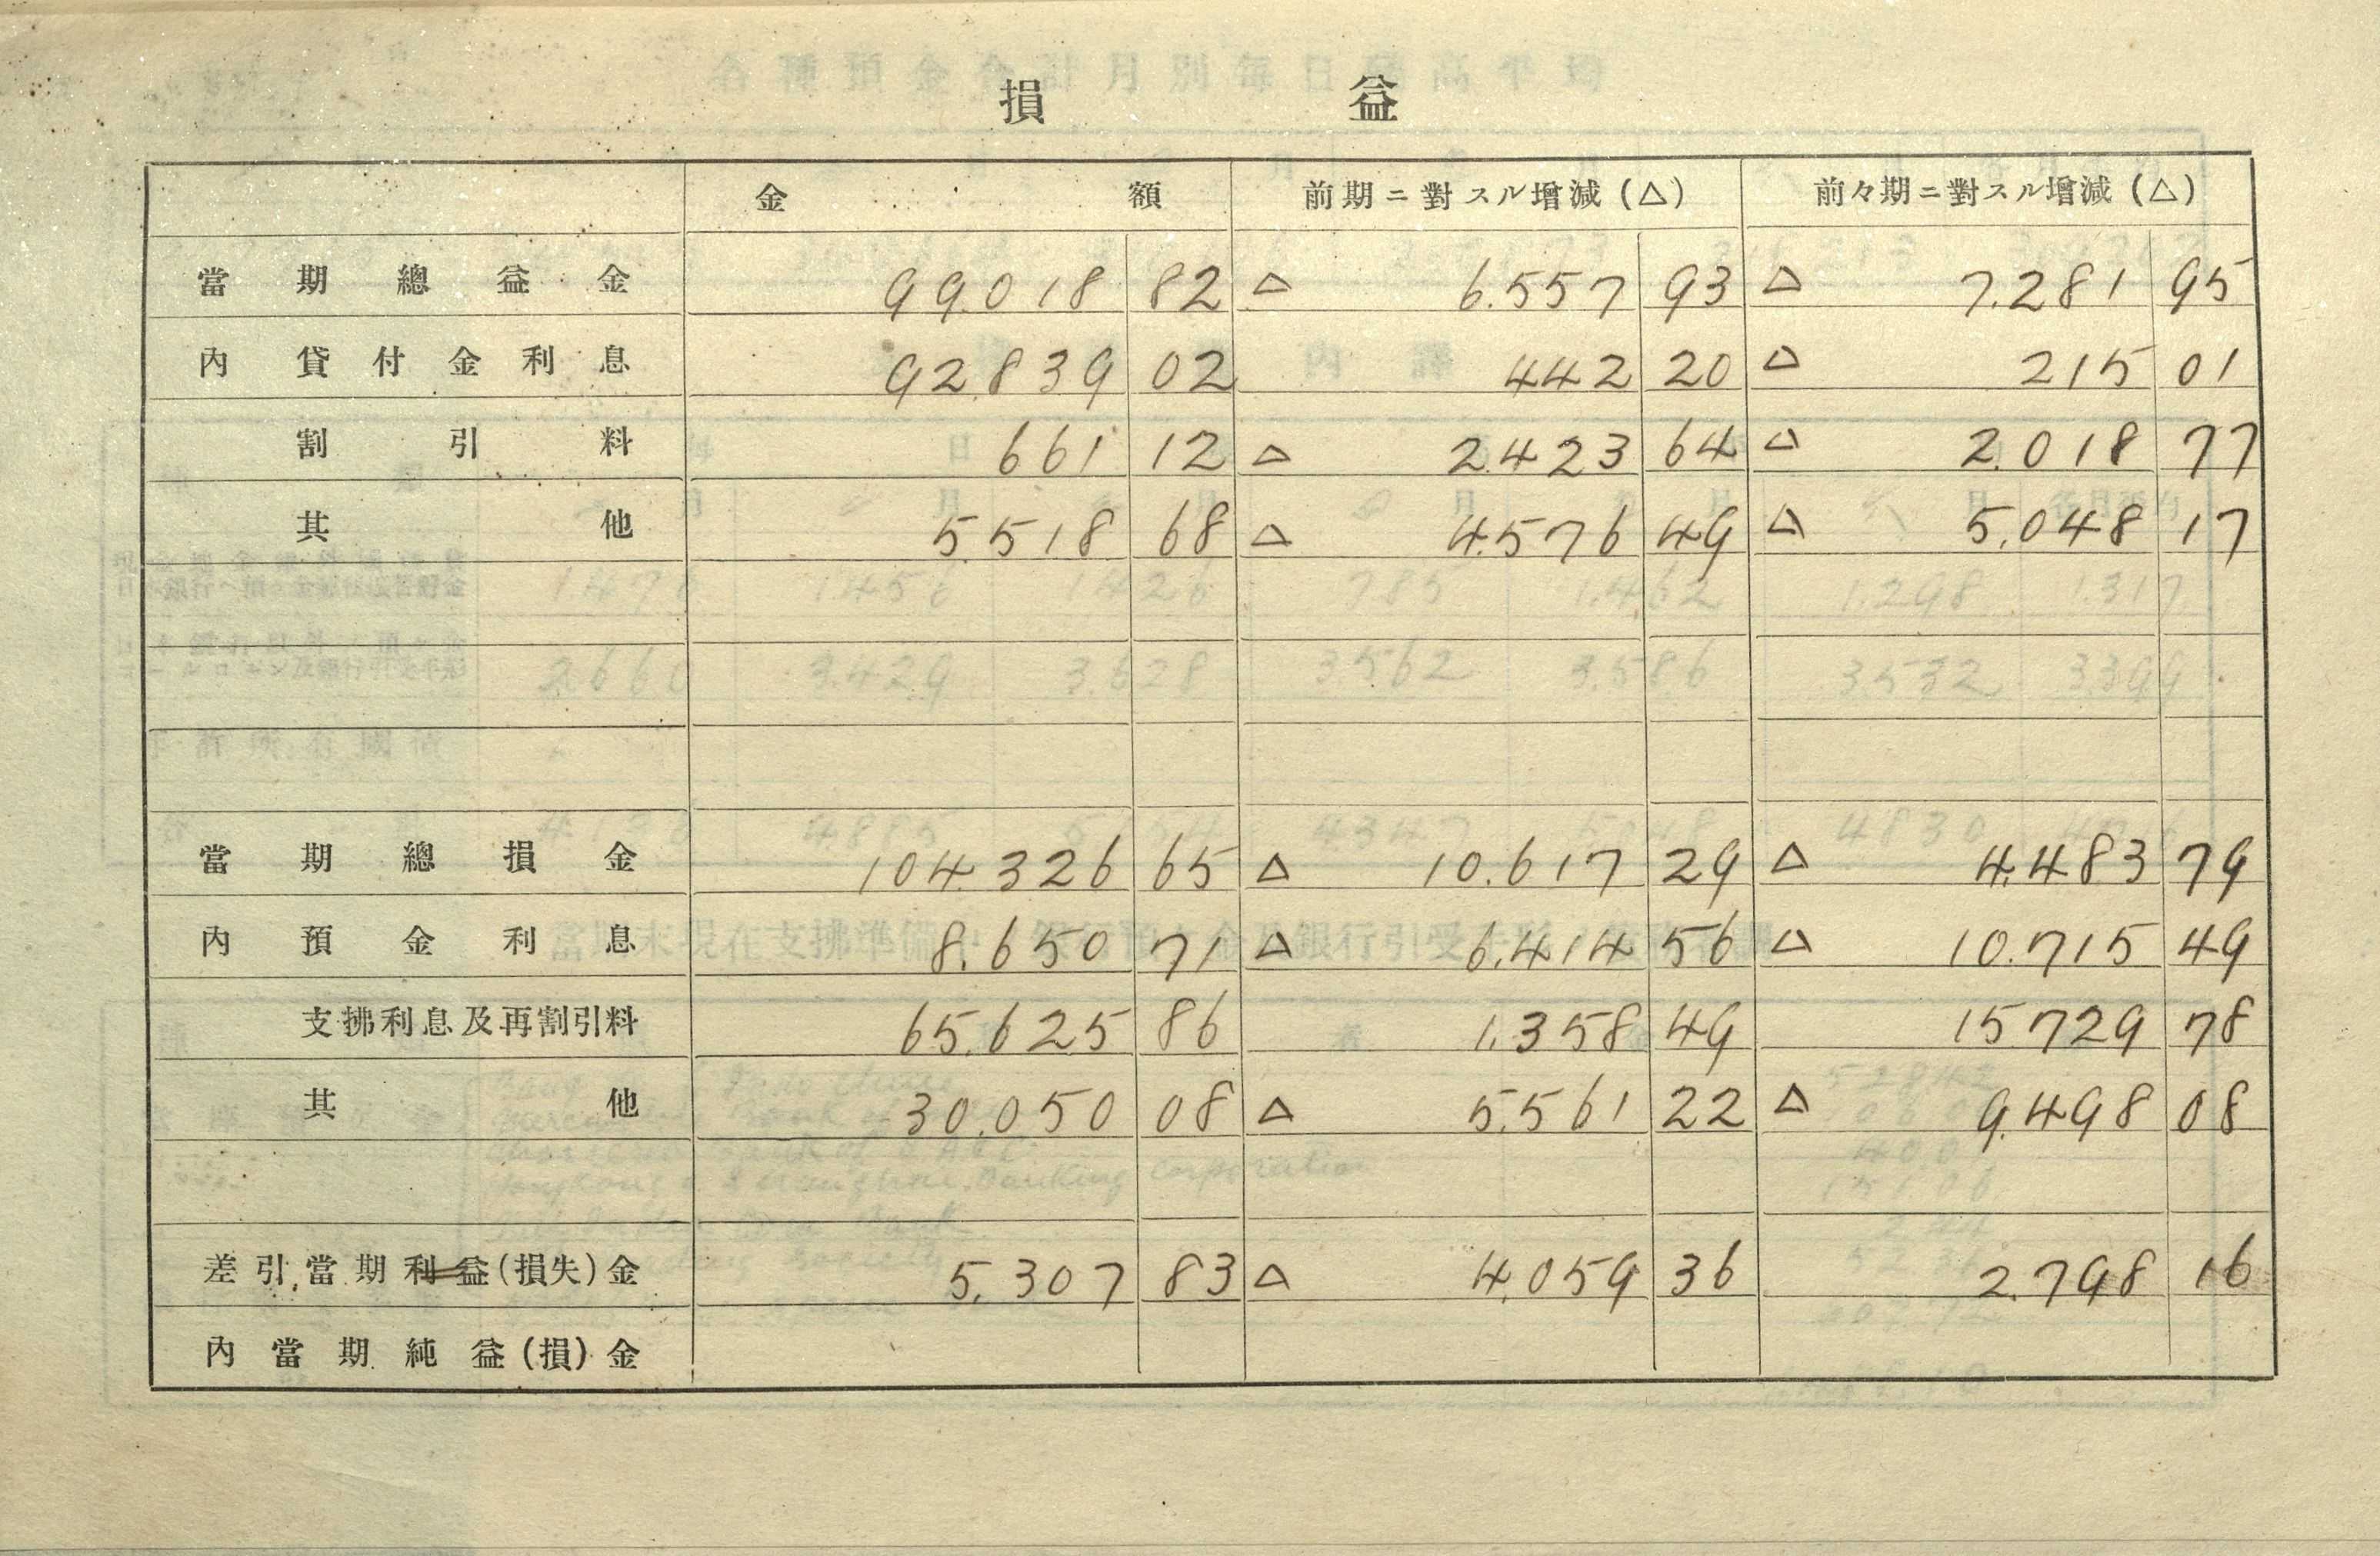 損益
金額 前期ニ對スル增減(△) 前々期ニ對スル增減(△)
當期總益金 99.018 82 △ 6.557 93 △ 7.281 95
內貸付金利息 92.839 02 442 20 △ 215 01
割引料 661 12 △ 2.423 64 △ 2.018 77
其他 5518 68 △ 4.576 49 △ 5.048 17
當期總損金 104.326 65 △ 10.617 29 △ 4.483 79
內預金利息 8.650 71 △ 6.414 56 △ 10.715 49
支拂利息及再割引料 65.625 86 1.358 49 15729 78
其他 30.050 08 △ 5.561 22 △ 9.498 08
差引當期利益(損失)金 5.307 83 △ 4.059 36 2.798 16
內當期純益(損)金